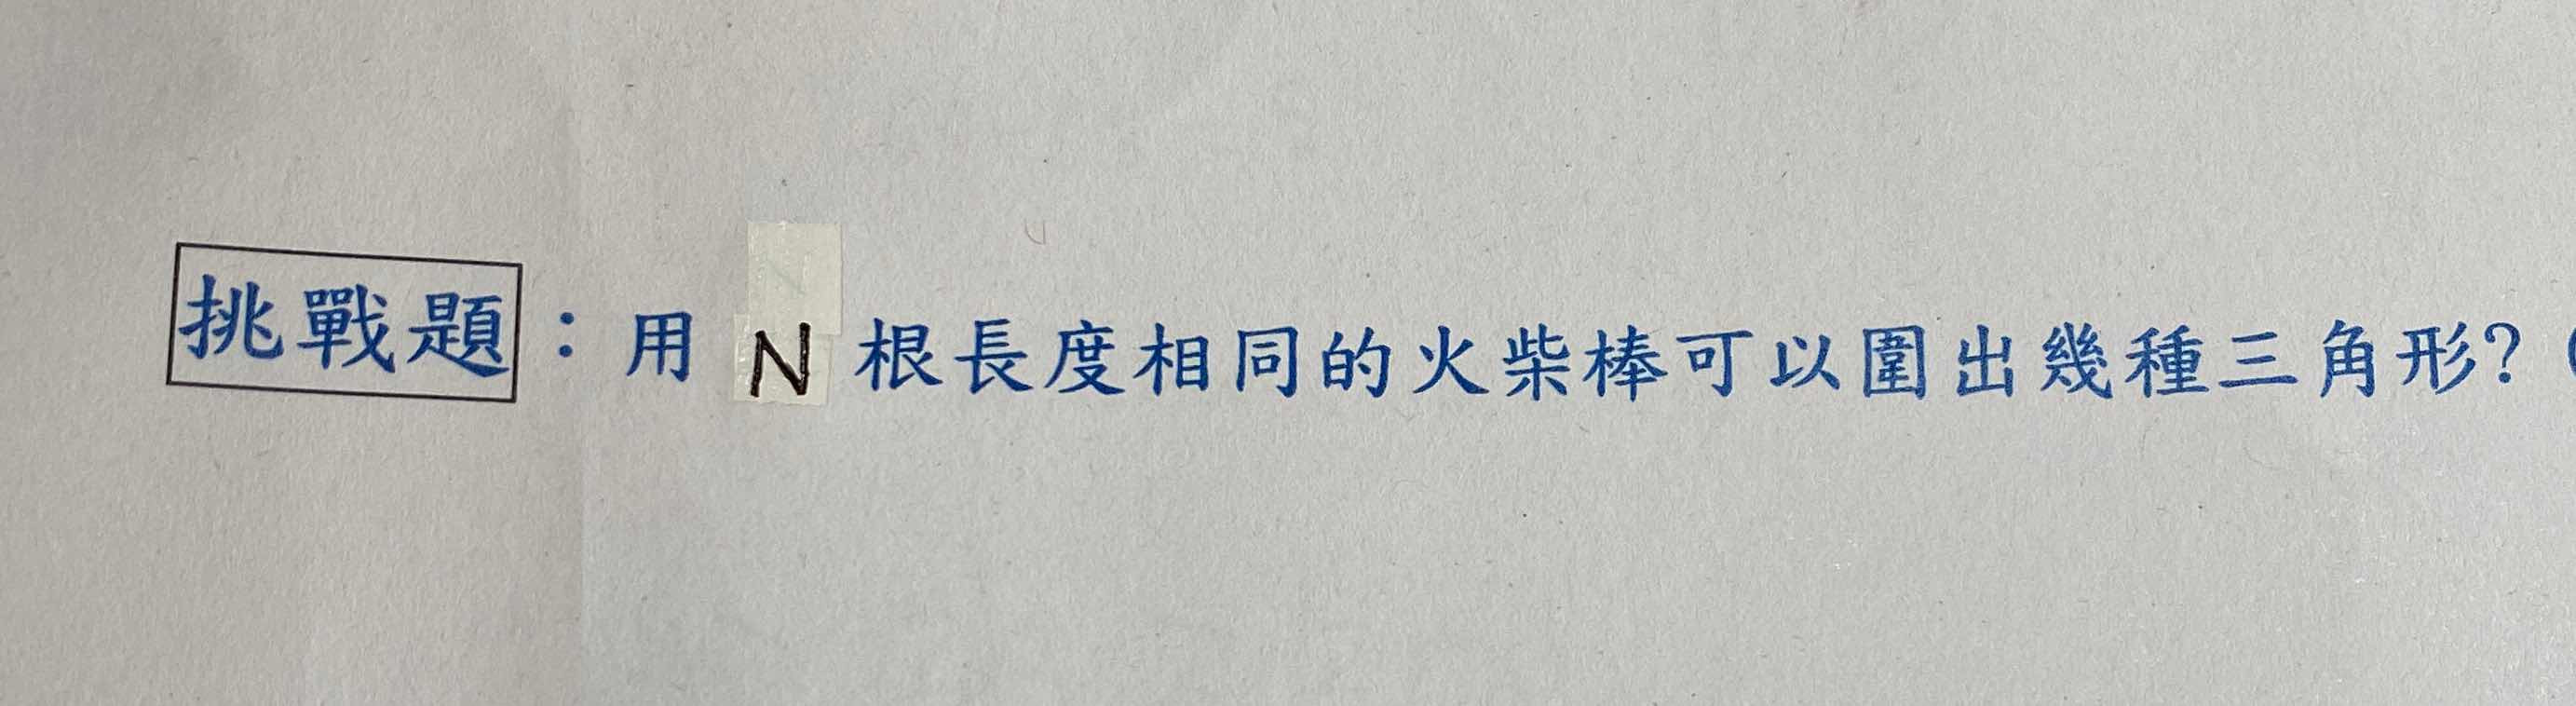 挑戰題：用 N 根長度相同的火柴棒可以圍出幾種三角形？